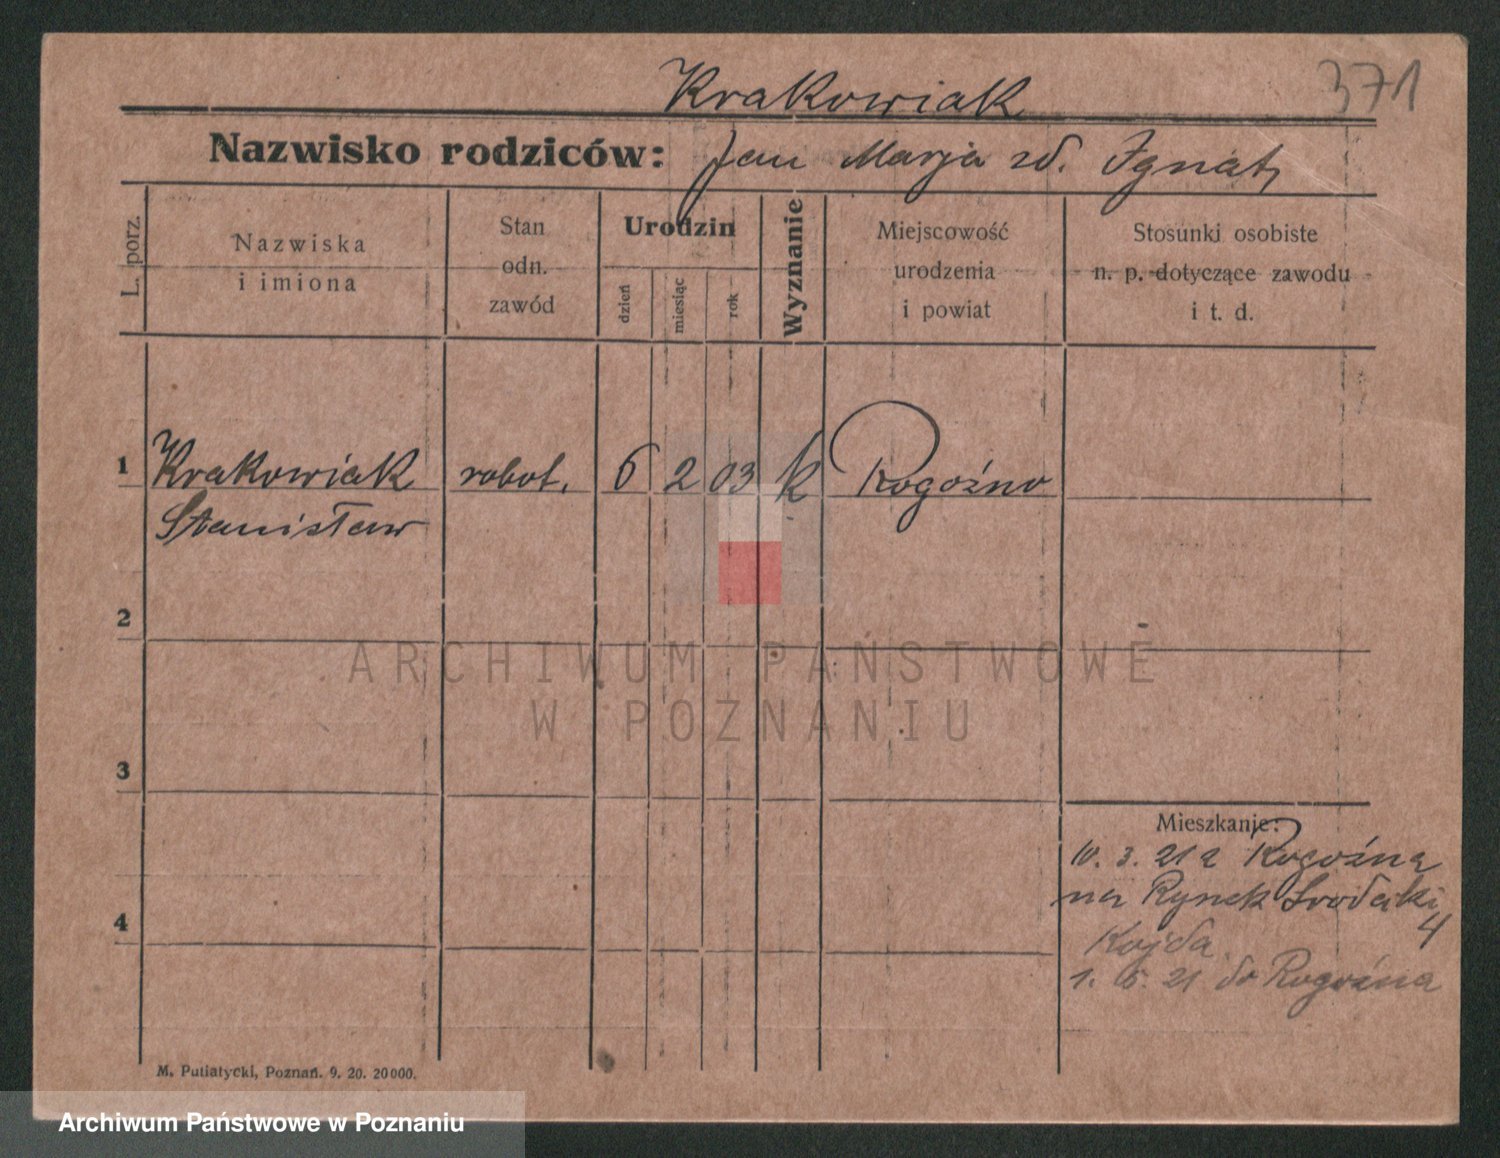 371
Krakowiak
Nazwisko rodziców: Jan Marja zd. Ignatz
L. porz.
Nazwiska
i imiona
Stan
odn.
zawód
Urodzin
dzień
miesiąc
rok
Wyznanie
Miejscowość
urodzenia
i powiat
Stosunki osobiste
n. p. dotyczące zawodu
i t. d.
1 Krakowiak robot. 6 2 03 k Rogoźno
Stanisław
2
ARCHIWUM PAŃSTWOWE
W POZNANIU
3
Mieszkanie:
10. 3. 21 z Rogoźna
na Rynek Śródecki
4
4
Kojda
1. 6. 21 do Rogoźna
M. Putiatycki, Poznań. 9. 20. 20000.
Archiwum Państwowe w Poznaniu